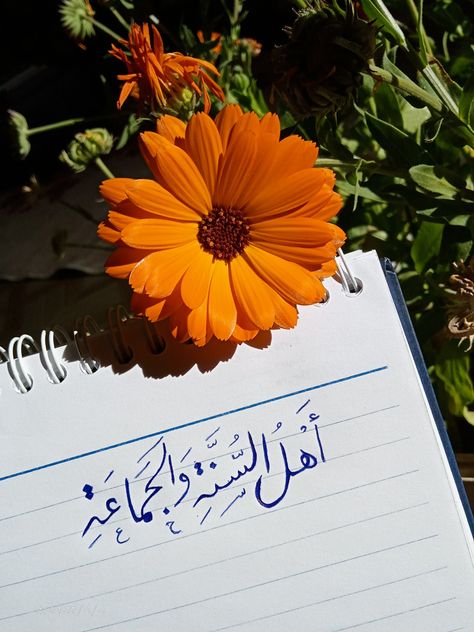 أَهْلُ السُّنَّةِ وَالجَمَاعَةِ